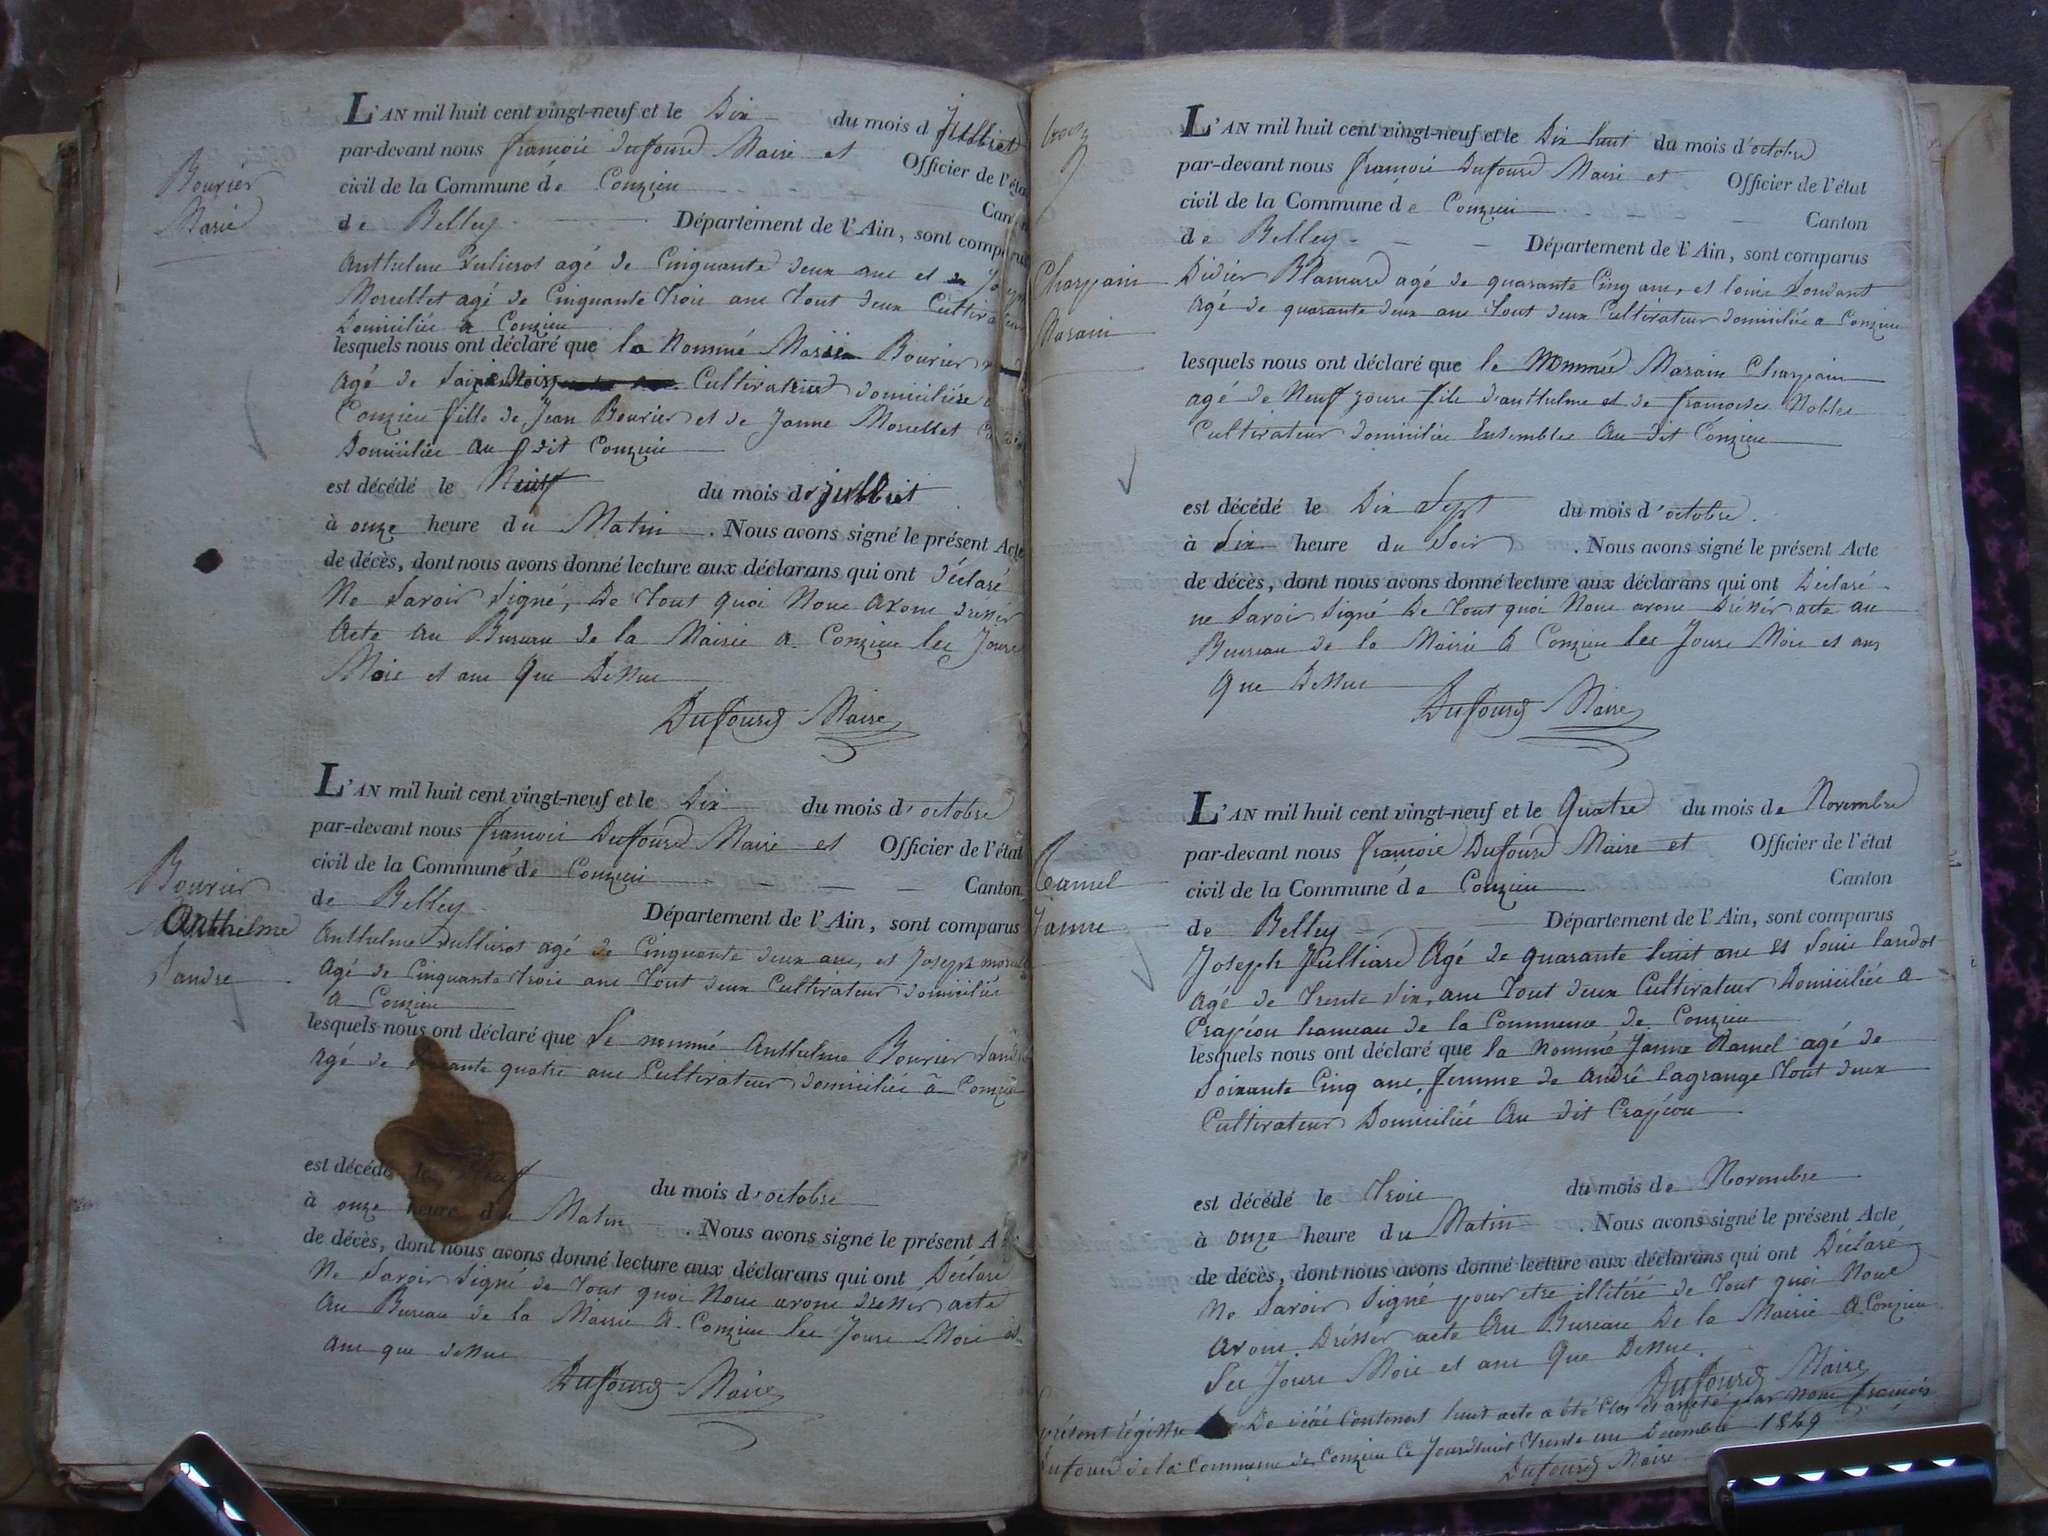 Bourier
Marie
L'AN mil huit cent vingt-neuf et le Dix du mois d juilliet
par-devant nous françois Dufourd Maire et Officier de l'éta
civil de la Commune de Conzieu Can n
de Belley Département de l'Ain, sont comp
Anthelme agé de Cinquante deux ans et
Morcellet agé de Cinquante trois ans tout deux Cultivateur
Domiciliés a Conzieu
lesquels nous ont déclaré que la Nommé Marie Bourier
Agé de Cultivateurs domiciliée a
Conzieu fille de Jean Bourier et de Janne Morcellet
Domiciliés au dit Conzieu
est décédé le Neuf du mois de juilliet
à onze heure du Matin . Nous avons signé le présent Acte
de décès, dont nous avons donné lecture aux déclarans qui ont déclaré
Ne Savoir Signé, De tout quoi Nous avons dresser
Acte au Bureau de la Mairie a Conzieu les Jours
Mois et ans que Dessus
Dufourd Maire
Bourier
Anthelme
Landre
L'AN mil huit cent vingt-neuf et le Dix du mois d'octobre
par-devant nous françois Dufourd Maire et Officier de l'état
civil de la Commune de Conzieu Canton
de Belley Département de l'Ain, sont comparus
Anthelme agé de Cinquante deux ans, et Joseph
Agé de Cinquante trois ans tout deux Cultivateur domiciliés
a Conzieu
lesquels nous ont déclaré que Le nommé Anthelme Bourier
Agé de quatre ans Cultivateur domicilié à Conzieu
est décédé le Neuf du mois d'octobre
à onze heure du Matin . Nous avons signé le présent A
de décès, dont nous avons donné lecture aux déclarans qui ont Déclaré
Ne Savoir Signé de tout quoi Nous avons dresser acte
au Bureau de la Mairie a Conzieu les Jours Mois et
Ans que dessus
Dufourd Maire
Charpain
Marain
L'AN mil huit cent vingt-neuf et le Dix huit du mois d'octobre
par-devant nous françois Dufourd Maire et Officier de l'état
civil de la Commune de Conzieu Canton
de Belley Département de l'Ain, sont comparus
Didier Blanchard agé de quarante Cinq ans, et louis
Agé de quarante deux ans tout deux Cultivateur domiciliés a Conzieu
lesquels nous ont déclaré que le Nommé Marain Charpain
agé de Neuf jours fils d'anthelme et de françoise
Cultivateur domiciliés Ensembles au dit Conzieu
est décédé le Dix Sept du mois d'octobre
à Six heure du Soir . Nous avons signé le présent Acte
de décès, dont nous avons donné lecture aux déclarans qui ont Déclaré
ne Savoir Signé De tout quoi Nous avons Drésser acte au
Bureau de la Mairie à Conzieu les Jours Mois et ans
que Dessus
Dufourd Maire
Ramel
Janne
L'AN mil huit cent vingt-neuf et le Quatre du mois de Novembre
par-devant nous françois Dufourd Maire et Officier de l'état
civil de la Commune de Conzieu Canton
de Belley Département de l'Ain, sont comparus
Joseph Julliard Agé de quarante huit ans et Louis landot
Agé de trente dix ans tout deux Cultivateur Domiciliés a
Crapéou hameau de la Commune de Conzieu
lesquels nous ont déclaré que la Nommé Janne Ramel agé de
Soixante Cinq ans, femme de André lagrange tout deux
Cultivateur Domiciliés au dit Crapéou
est décédé le trois du mois de Novembre
à onze heure du Matin . Nous avons signé le présent Acte
de décès, dont nous avons donné lecture aux déclarans qui ont Déclaré
Ne Savoir Signé pour etre illitéré de tout quoi Nous
Avons Drésser acte au Bureau De la Mairie a Conzieu
Les Jours Mois et ans Que Dessus.
Dufourd Maire
présent régistre De Contenant huit acte a été Clos et arreté par Nous françois
Dufourd de la Commune de Conzieu Ce Jourdhuit trente un Décembre 1829
Dufourd Maire